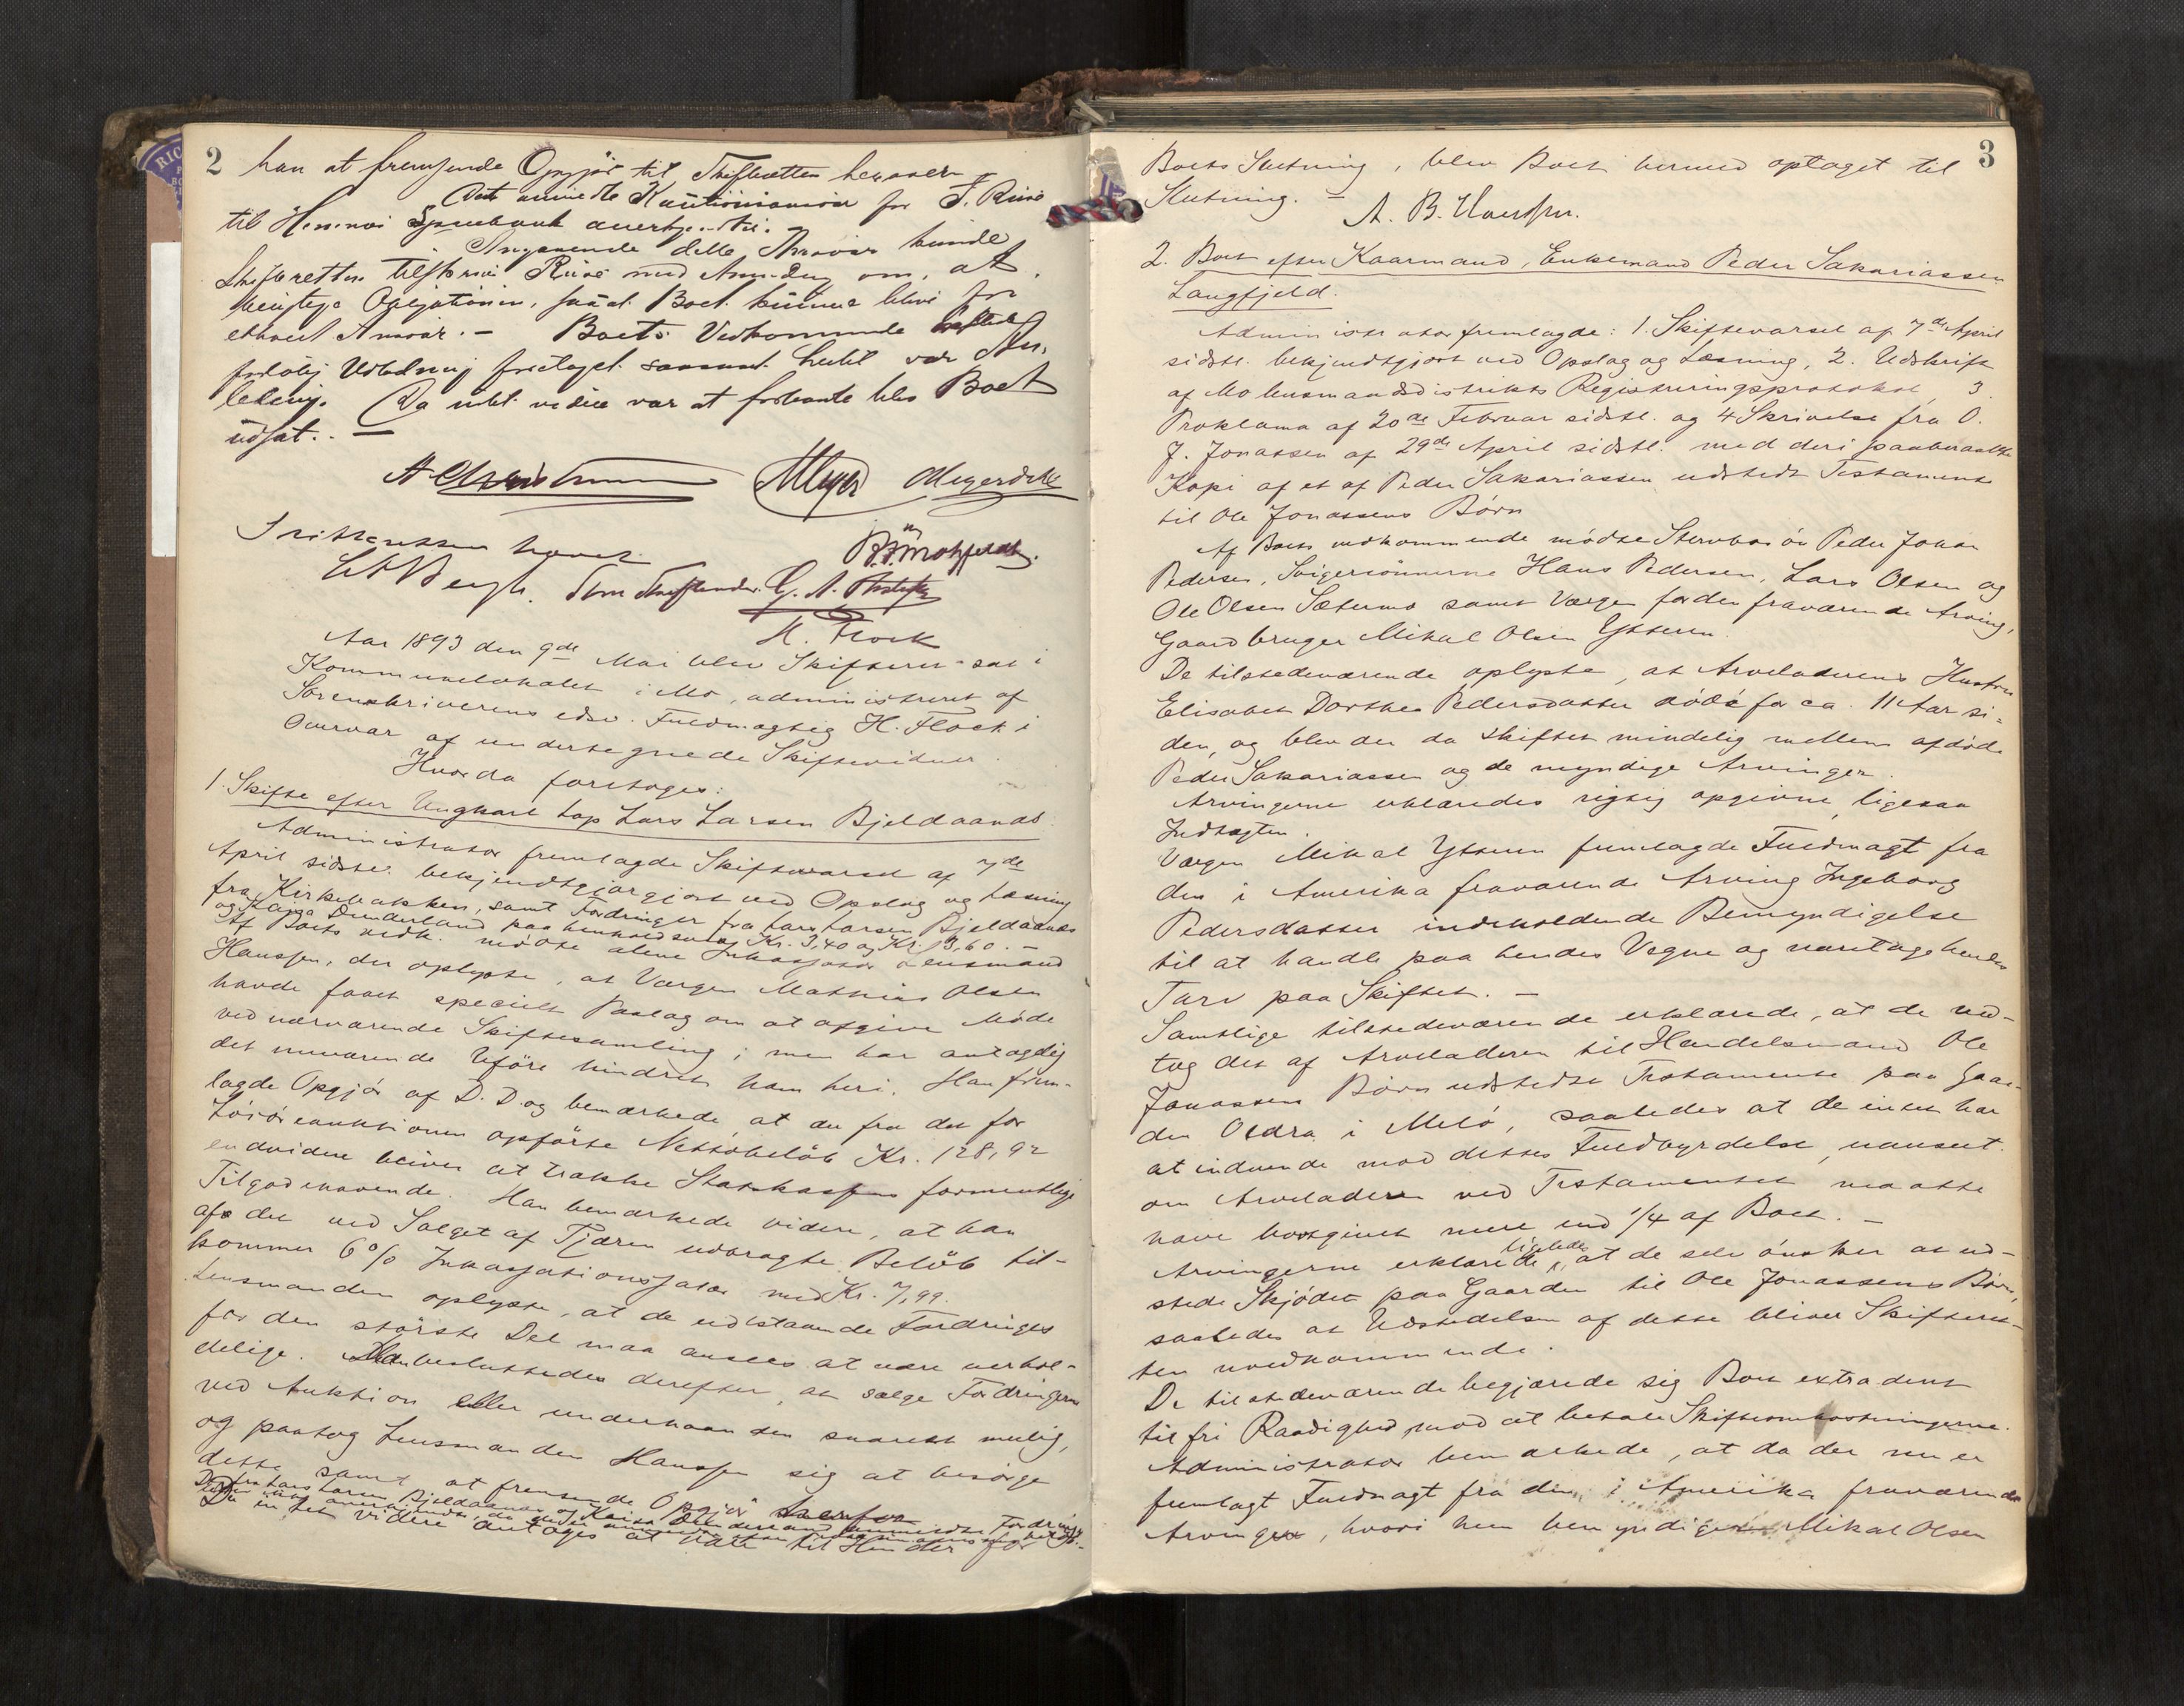 2
han at fremsende Opgjör til Skifteretten herover
Det anmeldte Kautionsansvar for J.
til Hemnes Sparebank anerkjendtes. -
Angaaende dette Ansvar kunde
Skifteretten tilskrive med Anmodning om, at
Obligationen, saa at Boet kunne blive fri
ethvert Ansvar. - Boets Vedkommende
foreløbig Udlodning foretaget saasnart hertil var An-
ledning. Da intet videre var at forhandle blev Boet
udsat. -
Skifteretten hævet
H. Flock
Aar 1893 den 9de Mai blev Skifteret sat i
Kommunelokalet i Mo, administreret af
Sorenskriverens edsv. Fuldmægtig H. Flock i
Overvær af undertegnede Skiftevidner.
Hvorda foretoges:
1. Skifte efter Ungkarl Lap Lars Larsen Bjeldaanes
Administrator fremlagde Skiftevarsel af 7de
April sidstl. bekjendtgjørgjort ved Opslag og Læsning
fra Kirkebakken, samt Fordringer fra Lars Larsen Bjeldaanes
og Kajsa Dunderland paa henholdsvis Kr. 3,40 og Kr. 13,60. -
Af Boets vedk. mødte alene Inkassator Lensmand
Hanssen, der oplyste, at Værgen Mathias Olsen
havde faaet specielt Paalæg om at afgive Møde
ved nærværende Skiftesamling; men har antagelig
det nuværende Uføre hindret ham heri. Han frem-
lagde Opgjør af D. D. og bemærkede, at der fra det for
Løsøreauktionen opførte Nettobeløb Kr. 128,92
endvidere bliver at trække Statskassens formentlige
Tilgodehavende. Han bemærkede videre, at han
af det ved Salget af Tjæren udbragte Beløb til-
kommer 6% Inkassationssalær med Kr. 7,99.
Lensmanden oplyste, at de udestaaende Fordringer
for den største Del maa ansees at være uerhol-
delige. Man besluttedes derefter, at sælge Fordringerne
ved Auktion eller underhaanden snarest mulig,
og paatog Lensmanden Hanssen sig at besørge
dette samt at fremsende Opgjør herfor
De fra Lars Larsen Bjeldaanes og Kaisa Dunderland anmeldte Fordringer
Da intet videre antages at være til Hinder for
3
Boets Slutning, blev Boet hermed optaget til
Slutning. -
A. B. Hanssen.
2. Boet efter Kaarmand, Enkemand Peder Sakariassen
Langfjeld.
Administrator fremlagde: 1. Skiftevarsel af 7de April
sidstl. bekjendtgjort ved Opslag og Læsning, 2. Udskrift
af Mo lensmandsdistrikts Registreringsprotokol, 3.
Proklama af 20de Februar sidstl. og 4 Skrivelse fra O.
J. Jonassen af 29de April sidstl. med deri paaberaabte
Kopi af et af Peder Sakariassen udstedt Testamente
til Ole Jonassens Børn
Af Boets vedkommende mødte Stervbosøn Peder Johan
Pedersen, Svigersønnerne Hans Pedersen, Lars Olsen og
Ole Olsen Sætermo samt Værgen for den fraværende Arving,
Gaardbruger Mikal Olsen Ytteren.
De tilstedeværende oplyste, at Arveladerens Hustru
Elisabet Dorthea Pedersdatter døde for ca. 11 Aar si-
den, og blev der da skiftet mindelig mellem afdøde
Peder Sakariassen og de myndige Arvinger.
Arvingerne erklæredes rigtig opgivne, ligesaa
Indtægten.
Værgen Mikal Ytteren fremlagde Fuldmagt fra
den i Amerika fraværende Arving Ingeborg
Pedersdatter indeholdende Bemyndigelse
til at handle paa hendes Vegne og varetage hendes
Tarv paa Skiftet. -
Samtlige tilstedeværende erklærede, at de ved-
tog det af Arveladeren til Handelsmand Ole
Jonassens Børn udstedte Testamente paa Gaar-
den Oldra i Melø, saaledes at de intet har
at indvende mod dettes Fuldbyrdelse, uanseet
om Arveladeren ved Testamentet maatte
have bortgivet mere end 1/4 af Boet. -
Arvingerne erklærede ligeledes, at de selv ønsker at ud-
stede Skjødet paa Gaarden til Ole Jonassens Børn,
saaledes at Udstedelsen af dette bliver Skifteret-
ten uvedkommende.
De tilstedeværende begjærede sig Boet extraderet
til fri Raadighed mod at betale Skifteomkostningerne.
Administrator bemærkede, at da der nu er
fremlagt Fuldmagt fra den i Amerika fraværende
Arving, hvori hun bemyndiger Mikal Olsen